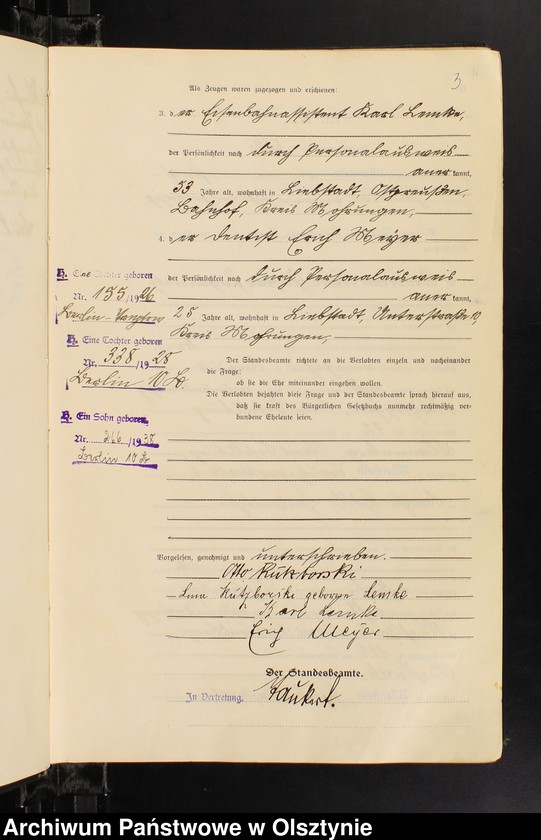 3
Als Zeugen waren zugezogen und erschienen:
3. der Eisenbahnassistent Karl Lemke,
der Persönlichkeit nach durch Personalausweis
anerkannt,
53 Jahre alt, wohnhaft in Liebstadt, Ostpreußen,
Bahnhof, Kreis Mohrungen,
4. der Dentist Erich Meyer
der Persönlichkeit nach durch Personalausweis
anerkannt,
25 Jahre alt, wohnhaft in Liebstadt, Unterstraße
Kreis Mohrungen,
H. Eine Tochter geboren
Nr. 155/1926
Berlin-
H. Eine Tochter geboren
Nr. 338/1928
Berlin 10
H. Ein Sohn geboren
Nr. 266/19
Berlin
Der Standesbeamte richtete an die Verlobten einzeln und nacheinander
die Frage:
ob sie die Ehe miteinander eingehen wollen.
Die Verlobten bejahten diese Frage und der Standesbeamte sprach hierauf aus,
daß sie kraft des Bürgerlichen Gesetzbuchs nunmehr rechtmäßig ver-
bundene Eheleute seien.
Vorgelesen, genehmigt und unterschrieben.
Otto
geborene Lemke
Karl Lemke
Erich Meyer
Der Standesbeamte.
In Vertretung.
Archiwum Państwowe w Olsztynie